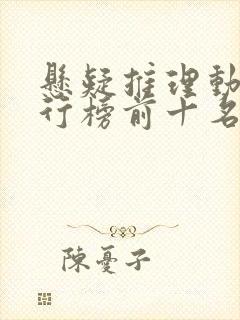 懸疑推理動
行榜前十名
陳憂子